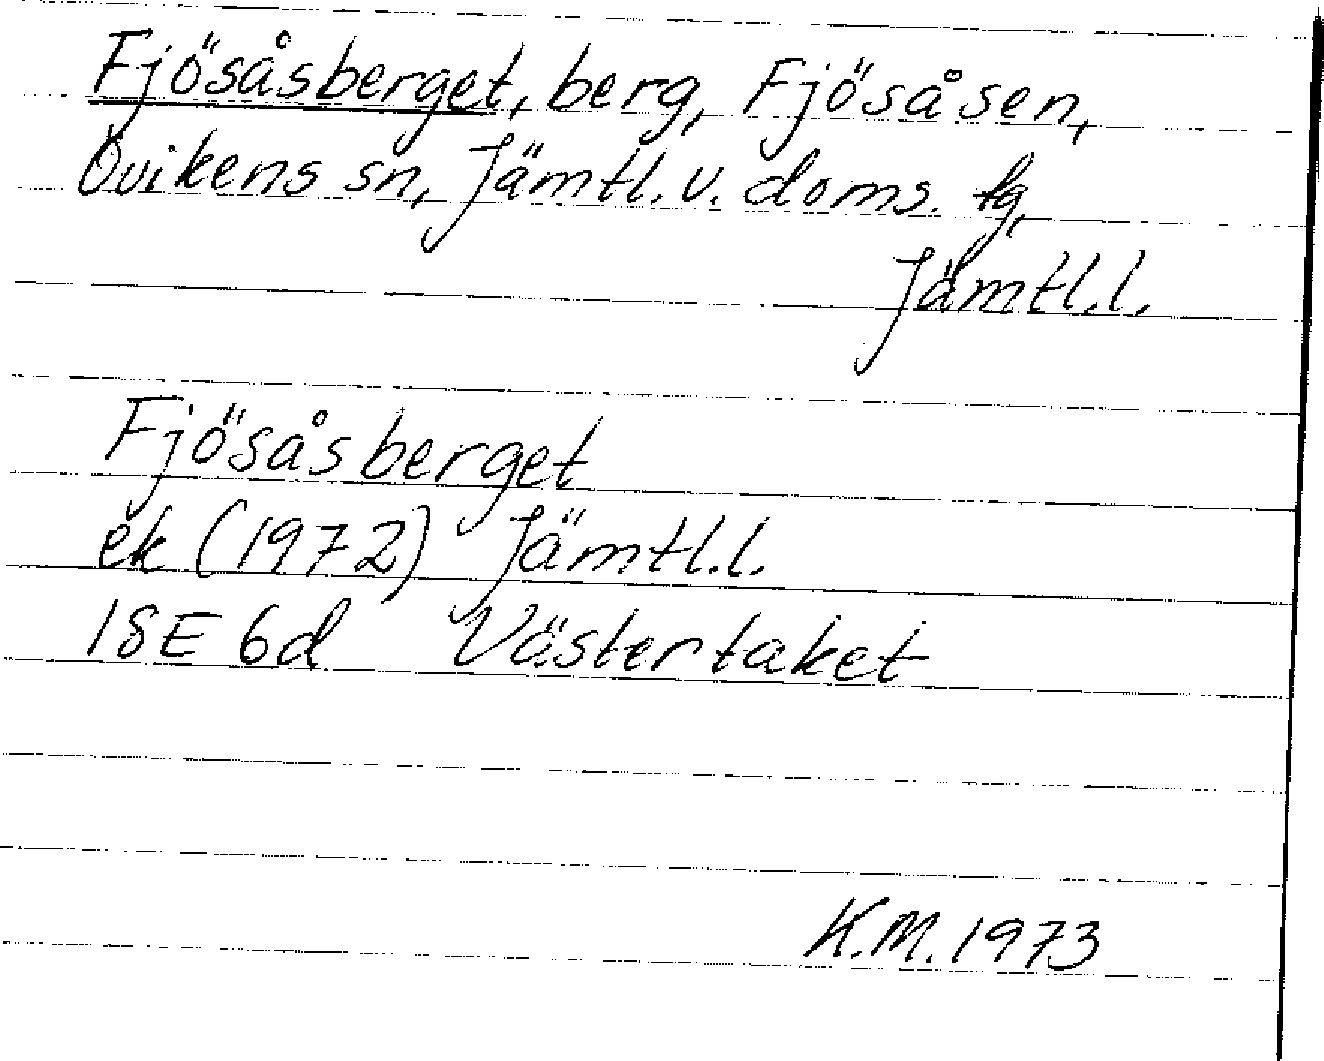 Fjösåsberget, berg, Fjösåsen,
Ovikens sn, Jämtl. v. doms. tg,
Jämtl.l.
Fjösåsberget
ek (1972) Jämtl.l.
18E 6d Västertaket
K.M. 1973